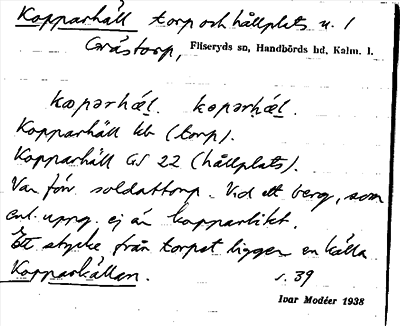 Kopparhäll torp och hållplats u. 1
Gråstorp, Fliseryds sn, Handbörds hd, Kalm. l.
kopərhæl. kopərhæl.
Kopparhäll kb (torp).
Kopparhäll GS 22 (hållplats).
Var förr soldattorp. Vid ett berg, som
enl. uppg. ej är kopparlikt.
Ett stycke från torpet ligger en källa
Kopparkällan. s. 39
Ivar Modéer 1938